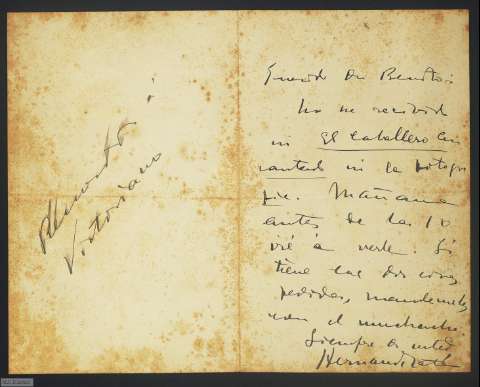 Querido Don Benito:
no he recibido
ni El Caballero En
cantado ni la fotogra
fía. Mañana
antes de las 10
iré á verle. Si
tiene las dos cosas
pedidas, mándemelas
con el muchacho.
Siempre de usted
Victoriano